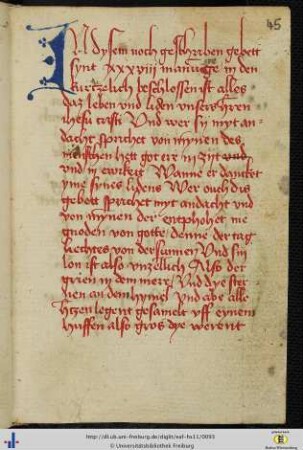 45
IN dysem noch geschriben gebett
synt xxxviij manunge in den
kurtzelich beschlossen ist alles
daz leben und liden unsers herren
ihesu cristi Und wer sij myt an-
dacht sprichet von mynen des
menschen hett got ere in zijt und
und in ewikeit Wanne er dancket
yme synes lidens Wer ouch dis
gebett sprichet myt andacht und
von mynen der entphohet me
gnoden von gotte denne der tag
liechtes von der sunnen Und sin
lon ist also unzellich Also der
grien in dem mere Und dye ster-
nen an dem hymel Und abe alle
legent gesamelt uff eynem
huffen also gros dye werent
http://dl.ub.uni-freiburg.de/diglit/suf-hs11/0093
© Universitätsbibliothek Freiburg